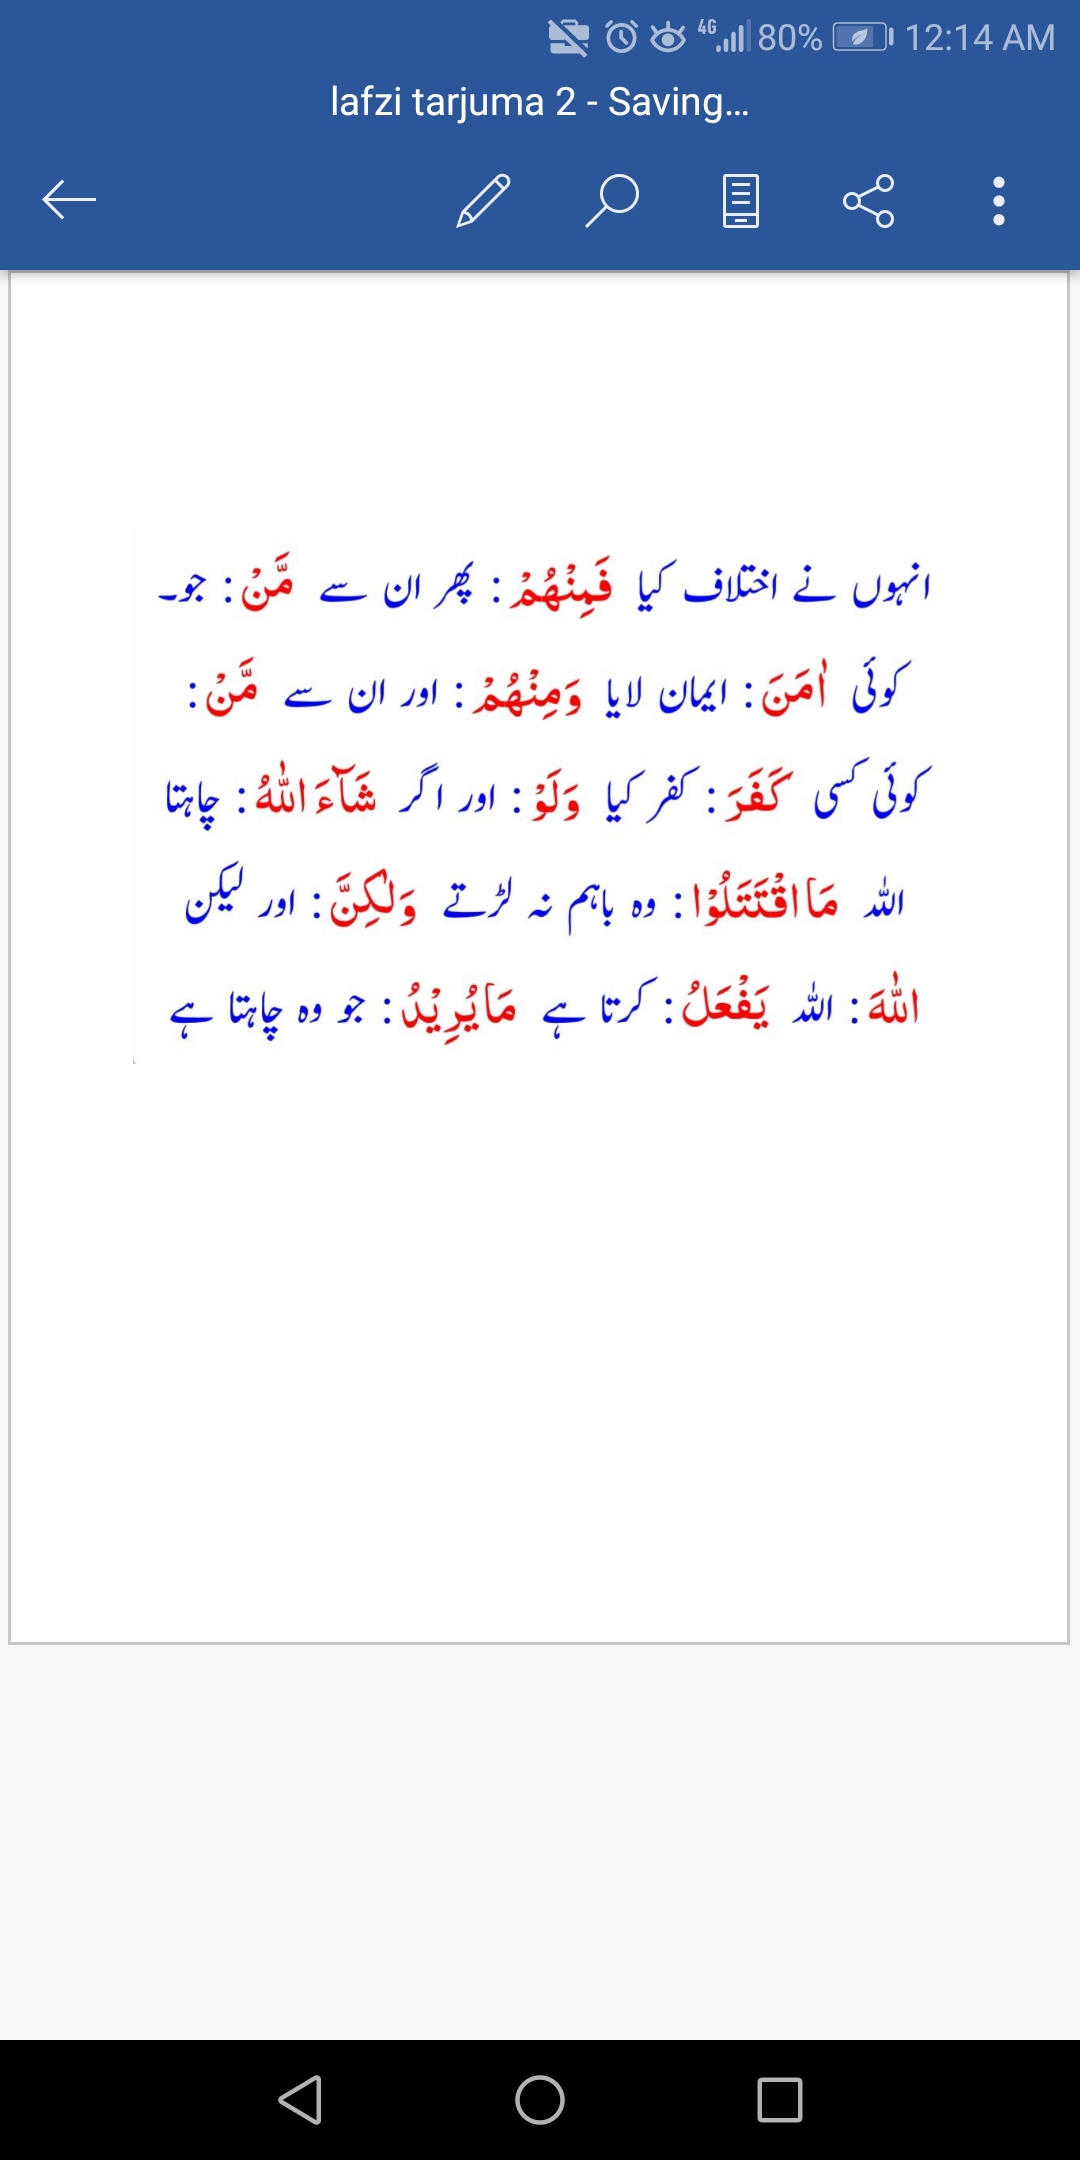 4G 80% 12:14 AM
lafzi tarjuma 2 - Saving...
انہوں نے اختلاف کیا فَمِنْھُمْ : پھر ان سے مَّنْ : جو۔
کوئی اٰمَنَ : ایمان لایا وَمِنْھُمْ : اور ان سے مَّنْ :
کوئی کسی كَفَرَ : کفر کیا وَلَوْ : اور اگر شَآءَ اللّٰهُ : چاہتا
اللہ مَا اقْتَتَلُوْا : وہ باہم نہ لڑتے وَلٰكِنَّ : اور لیکن
اللّٰهَ : اللہ يَفْعَلُ : کرتا ہے مَا يُرِيْدُ : جو وہ چاہتا ہے